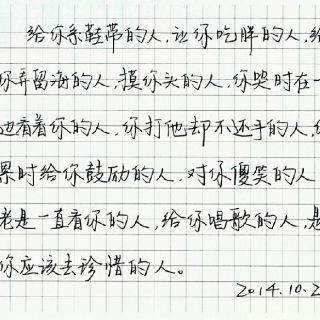 给你系鞋带的人,让你吃胖的人,给
你弄留海的人,摸你头的人,你哭时在一
边看着你的人,你打他却不还手的人,
累时给你鼓励的人,对你傻笑的人
老是一直看你的人,给你唱歌的人,是
你应该去珍惜的人。
2014.10.2